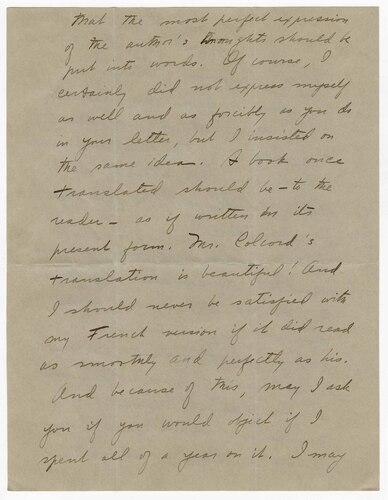 that the most perfect expression
of the author's thoughts should be
put into words. Of course, I
certainly did not express myself
as well and as forcibly as you do
in your letter, but I insisted on
the same idea. A book once
translated should be - to the
reader - as if written in its
present form. Mr. Colcord's
translation is beautiful! And
I should never be satisfied with
my French version if it did read
as smoothly and perfectly as his.
And because of this, may I ask
you if you would object if I
spent all of a year on it. I may